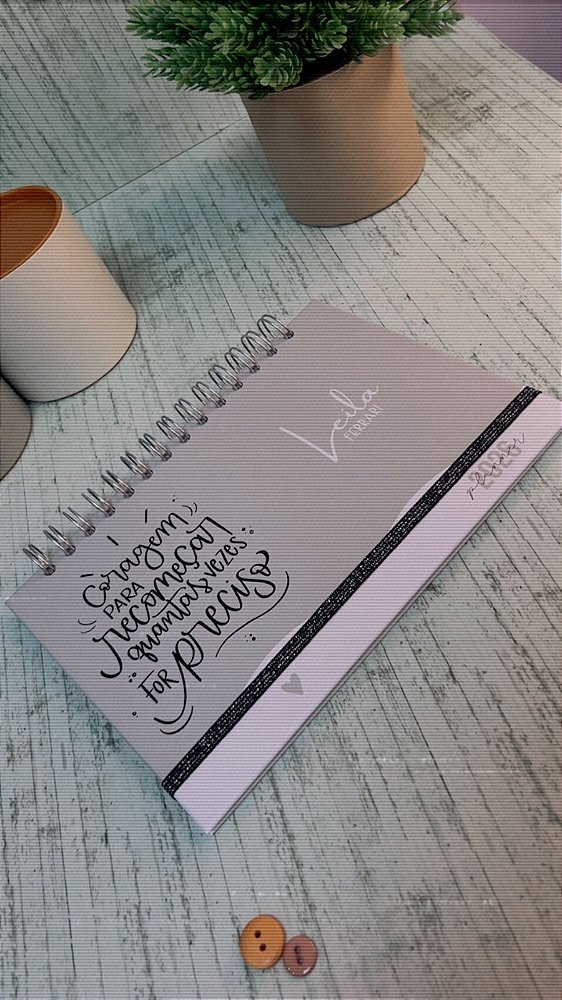 Coragem
PARA
recomeçar
quantas vezes
FOR preciso
Leila
FERRARI
planner
2026